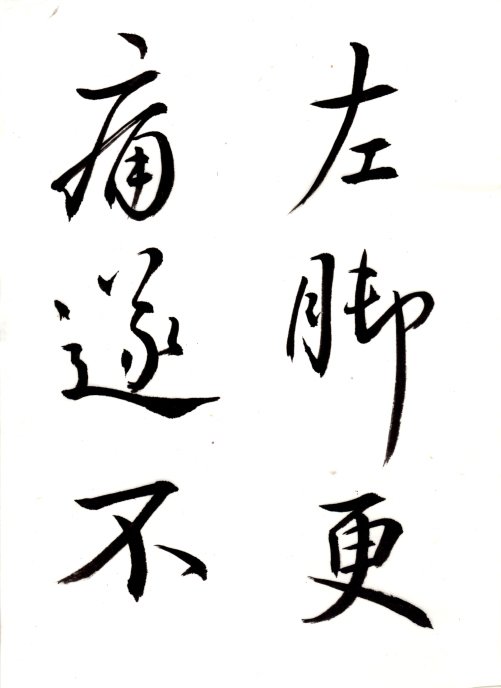 左脚更
痛遂不